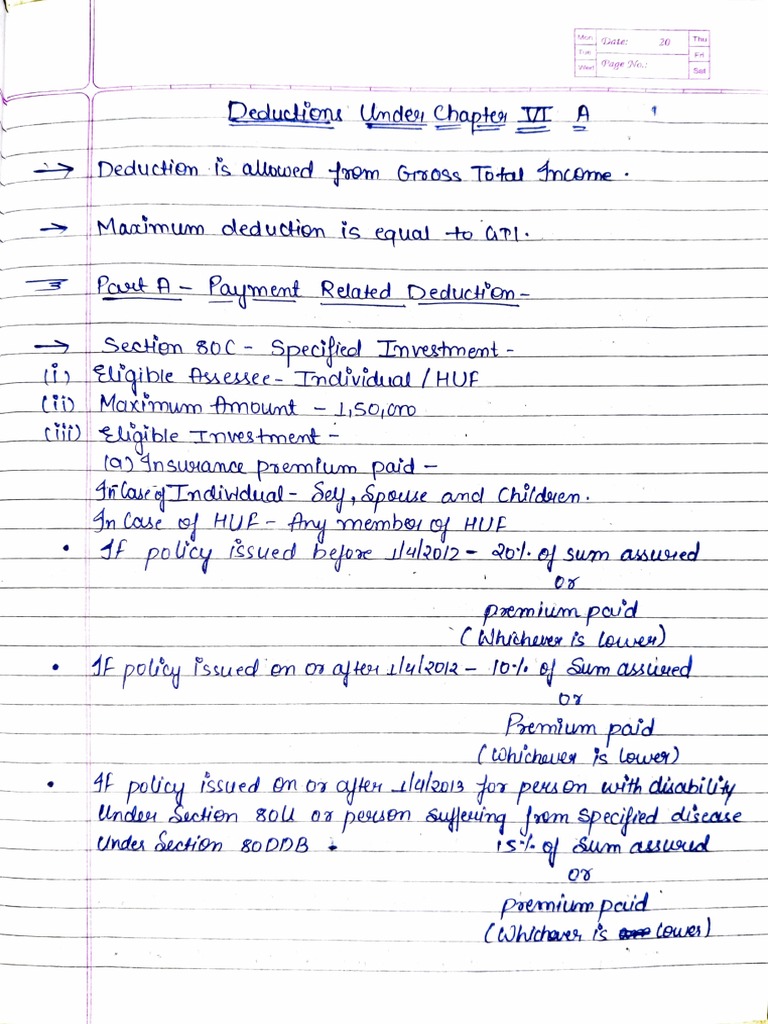 Mon Tue Wed Date: 20 Page No.: Thu Fri Sat
Deductions Under Chapter VI A
→ Deduction is allowed from Gross Total Income.
→ Maximum deduction is equal to GTI.
Part A - Payment Related Deduction -
→ Section 80C - Specified Investment -
(i) Eligible Assessee - Individual / HUF
(ii) Maximum Amount - 1,50,000
(iii) Eligible Investment -
(a) Insurance premium paid -
In Case of Individual - Self, Spouse and Children.
In Case of HUF - Any member of HUF
• If policy issued before 1/4/2012 - 20% of sum assured
or
premium paid
(Whichever is lower)
• If policy issued on or after 1/4/2012 - 10% of Sum assured
or
Premium paid
(Whichever is lower)
• If policy issued on or after 1/4/2013 for person with disability
Under Section 80U or person suffering from specified disease
Under Section 80DDB • 15% of Sum assured
or
premium paid
(Whichever is lower)